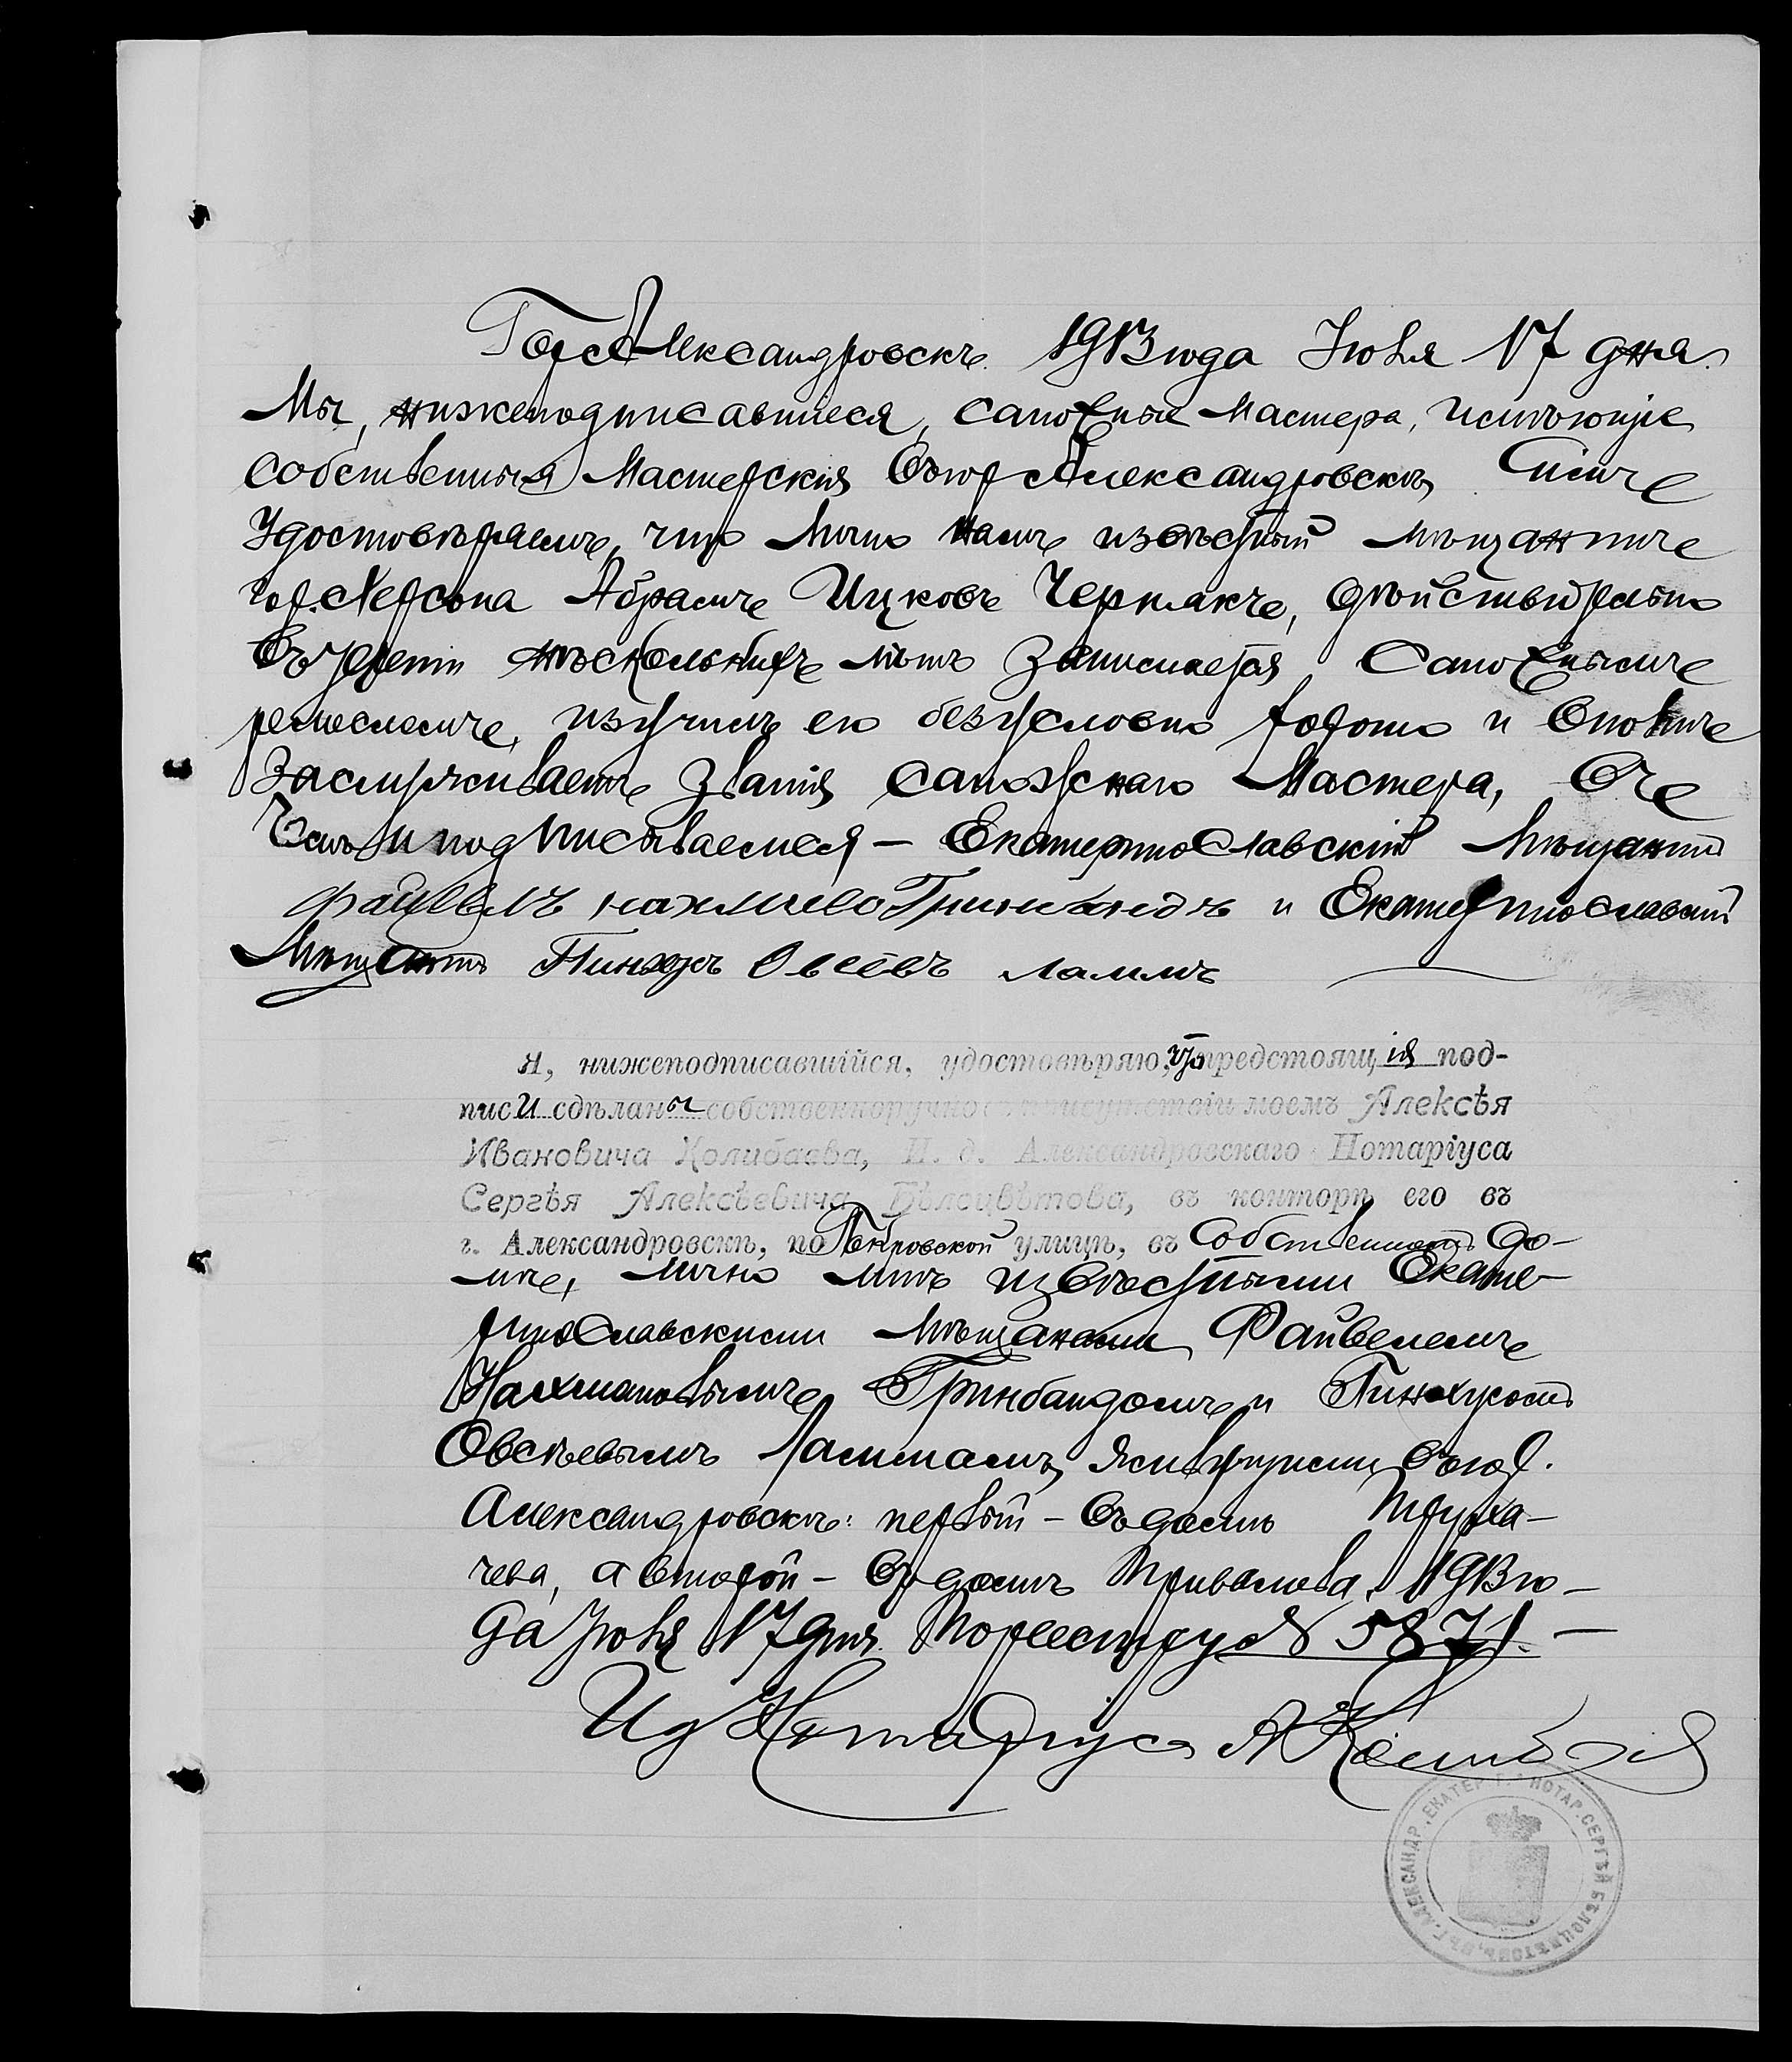 Гор. Александровскъ. 1913 года Іюля 17 дня.
Мы, нижеподписавшіеся, сапожные мастера, имѣющіе
собственныя мастерскія въ гор. Александровскѣ, симъ
удостовѣряемъ, что лично намъ извѣстный мѣщанинъ
гор. Херсона Абрамъ Ицковъ Чернякъ, дѣйствительно
въ теченіи нѣсколькихъ лѣтъ занимается сапожнымъ
ремесломъ, изучилъ его безусловно хорошо и вполнѣ
заслуживаетъ званія сапожнаго мастера, въ
чемъ и подписываемся — Екатеринославскій мѣщанинъ
Файвель Нахмано Гринбандъ и Екатеринославскій
мѣщанинъ Пинхусъ Овсѣевъ Ламмъ
Я, нижеподписавшійся, удостовѣряю, что предстоящія под-
писи сдѣланы собственноручно въ присутствіи моемъ Алексѣя
Ивановича Колибаева, И. д. Александровскаго Нотаріуса
Сергѣя Алексѣевича Бѣлоцвѣтова, въ конторѣ его въ
г. Александровскѣ, по Покровской улицѣ, въ собственномъ до-
мѣ, лично мнѣ извѣстными Екате-
ринославскими мѣщанами Файвелемъ
Нахмановымъ Гринбандомъ и Пинхусомъ
Овсѣевымъ Ламмомъ, живущими въ гор.
Александровскѣ: первый — въ домѣ Труха-
чева, а второй — въ домѣ Привалова. 1913 го-
да Іюля 17 дня. По реестру № 5871. —
Ид Нотаріуса А Колибаев
Г. АЛЕКСАНДР. ЕКАТЕР. Г. НОТАР. СЕРГѢЙ БѢЛОЦВѢТОВЪ